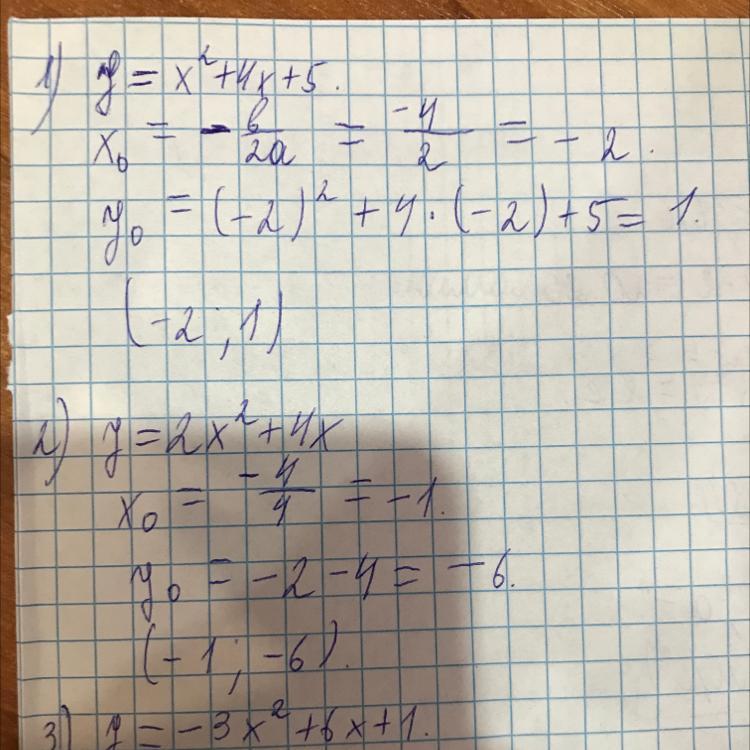 1) y = x² + 4x + 5.
x₀ = - в/2a = -4/2 = - 2.
y₀ = (-2)² + 4 · (-2) + 5 = 1.
(-2 ; 1)
2) y = 2x² + 4x
x₀ = -4/4 = -1.
y₀ = -2 - 4 = -6.
(-1 ; -6).
3) y = -3x² + 6x + 1.